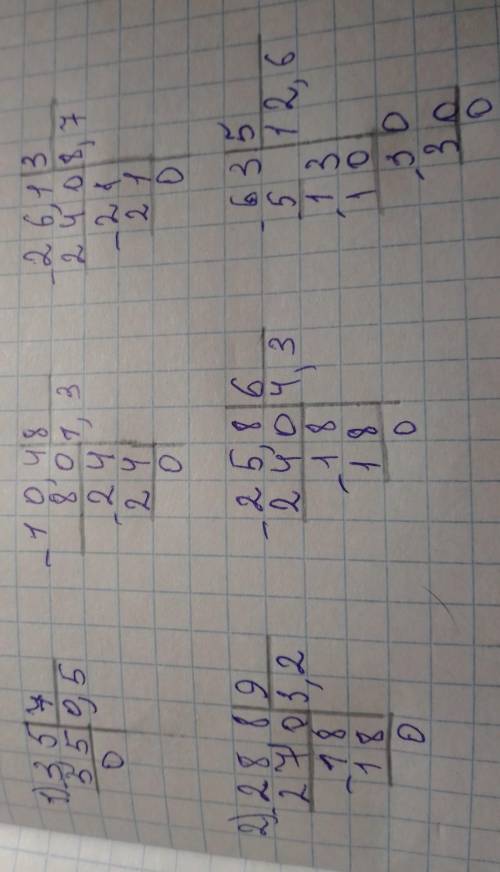 1) 3,5 7 -10,4 8 -26,1 3
3 5 0,5 8 0 1,3 24 0 8,7
0 -24 -21
24 21
0 0
2) -28 8 9 -25,8 6 -63 5
27 0 3,2 24 0 4,3 5 12,6
-18 -18 -13
18 18 10
0 0 -30
30
0